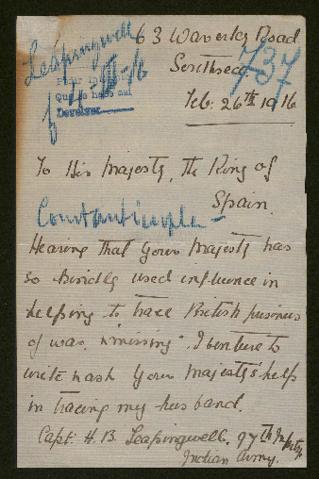 63 Waverley Road
Southsea
Feb: 26th 1916
Leapingwell
737
Devolver
To His Majesty, The King of
Spain.
Constantinople
Hearing that Your Majesty has
so kindly used influence in
helping to trace British prisoners
of war, & "missing". I venture to
write & ask Your Majesty's help
in tracing my husband.
Capt: H. B. Leapingwell. 97th Infantry
Indian Army.